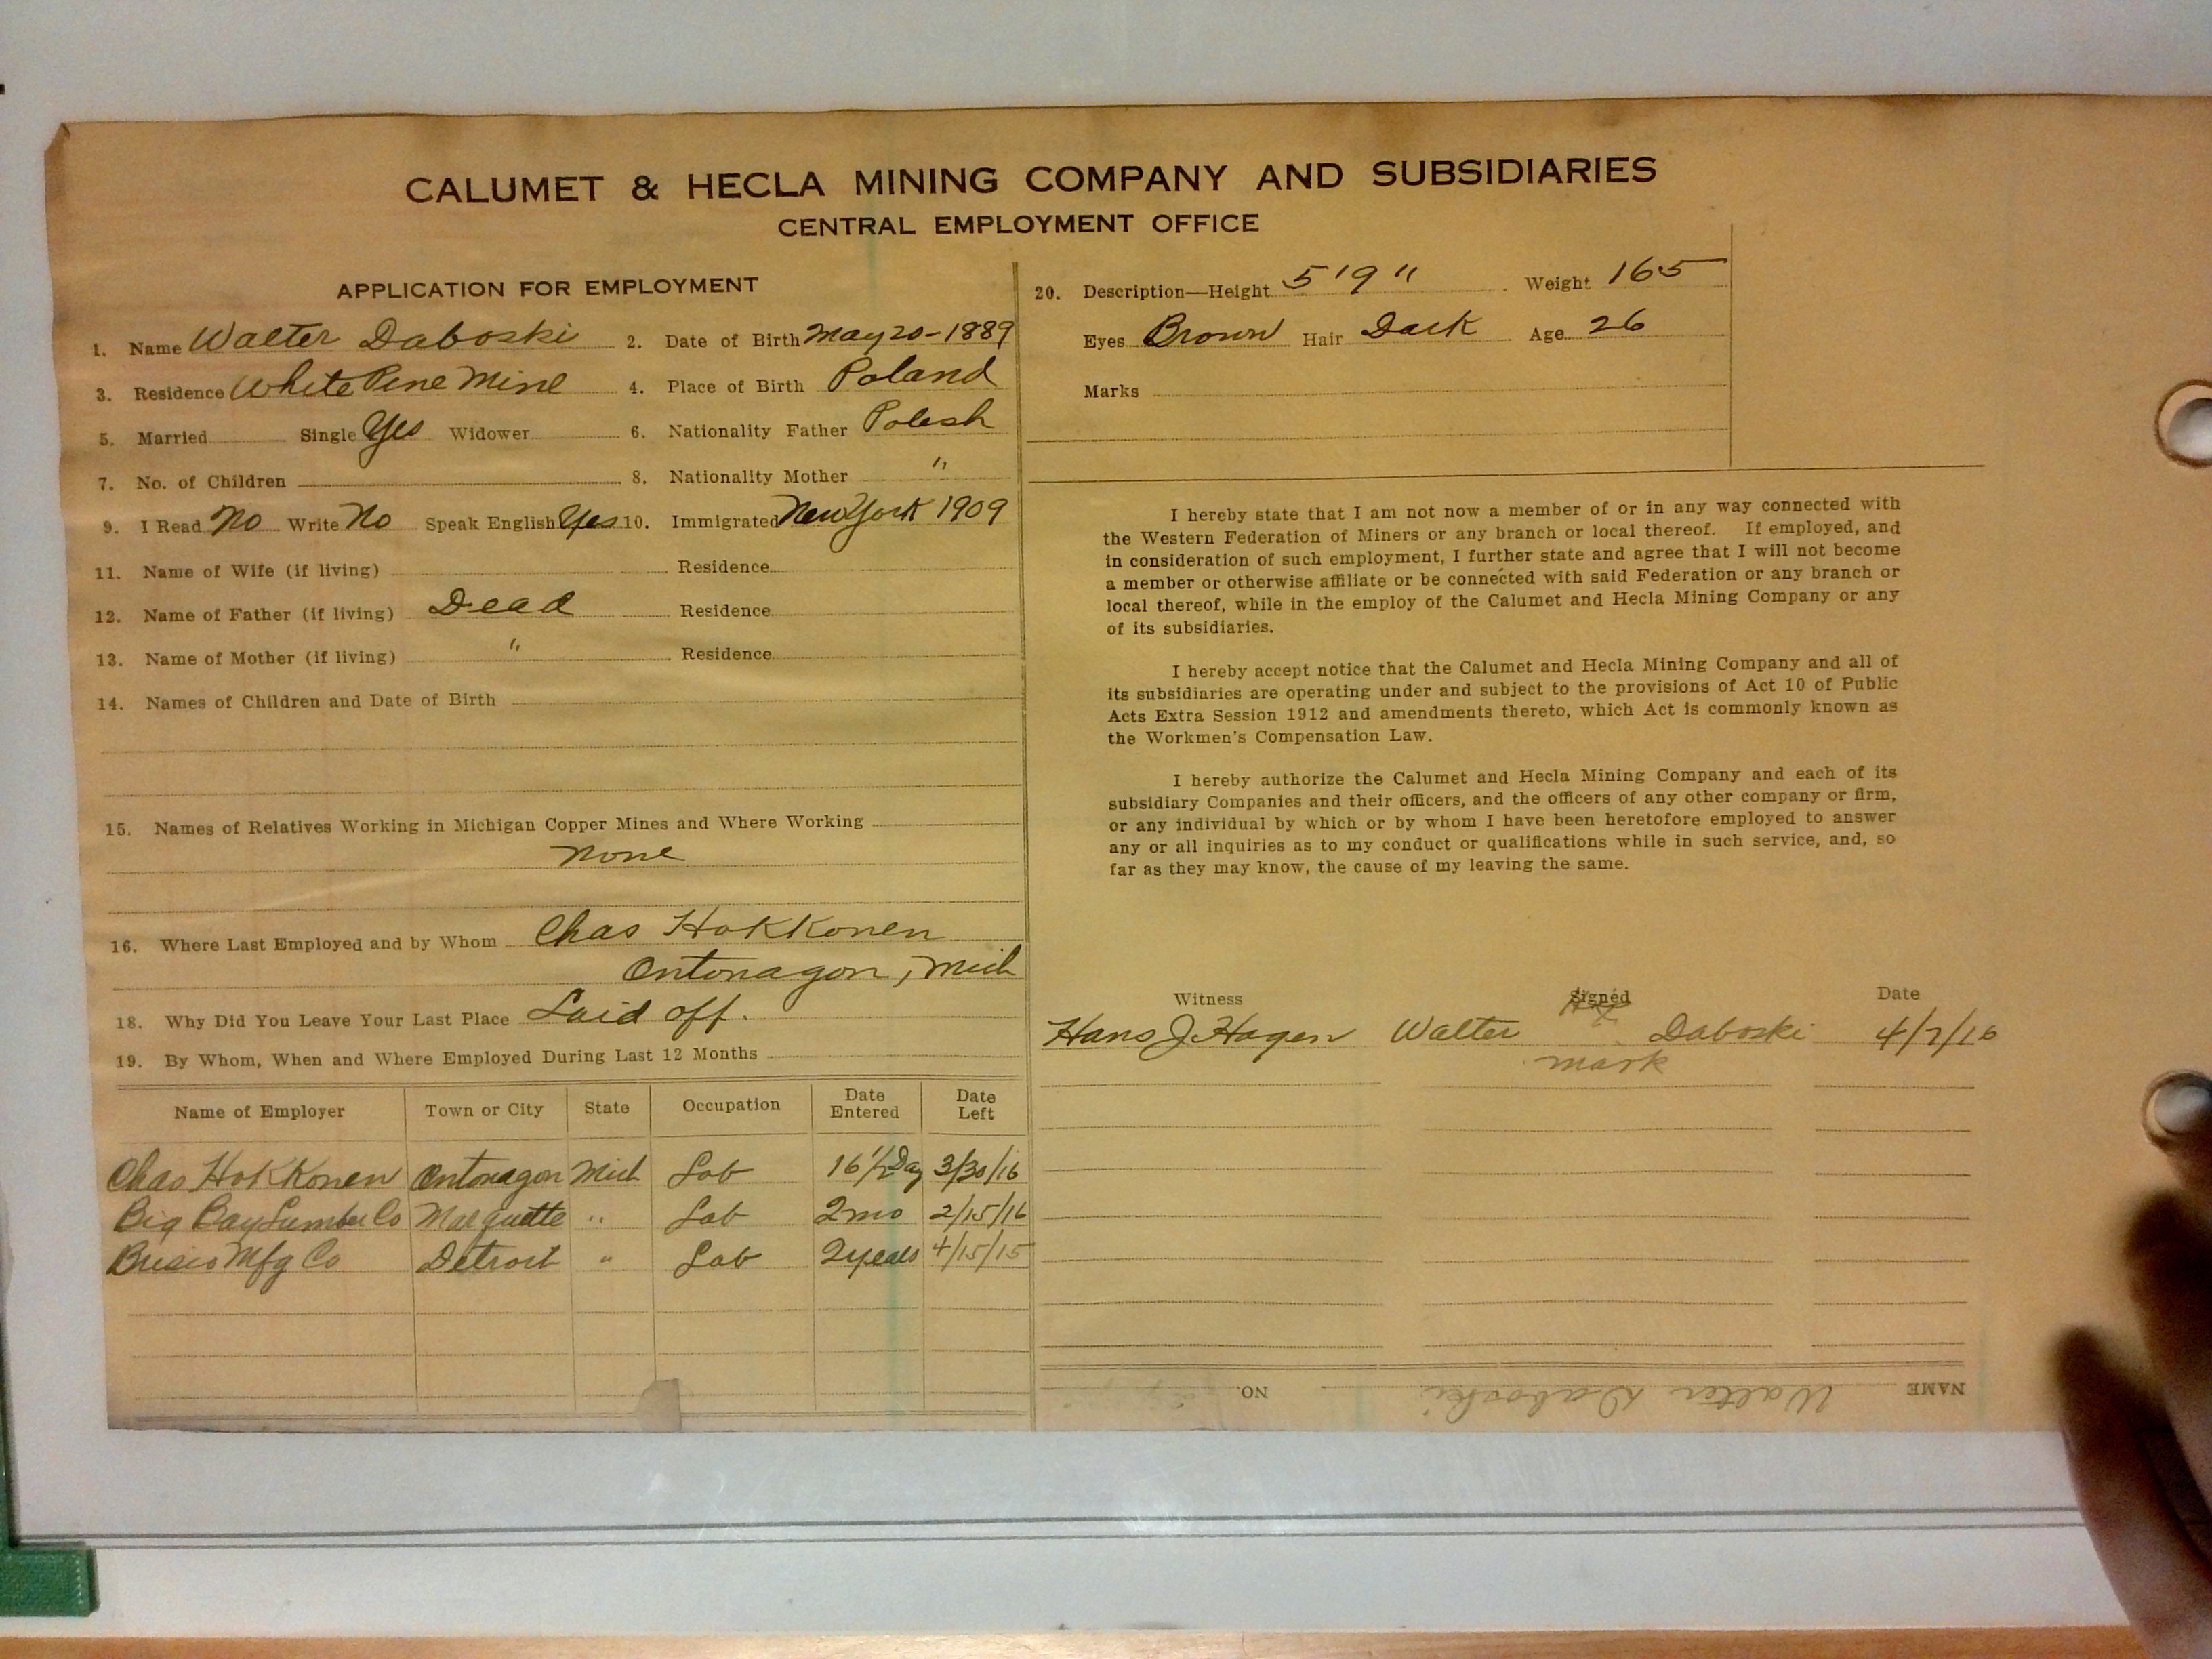 CALUMET & HECLA MINING COMPANY AND SUBSIDIARIES
CENTRAL EMPLOYMENT OFFICE
APPLICATION FOR EMPLOYMENT
1. Name Walter Daboski 2. Date of Birth May 20-1889
3. Residence White Pine Mine 4. Place of Birth Poland
5. Married Single Yes Widower 6. Nationality Father Polish
7. No. of Children 8. Nationality Mother "
9. I Read No Write No Speak English Yes 10. Immigrated New York 1909
11. Name of Wife (if living) Residence
12. Name of Father (if living) Dead Residence
13. Name of Mother (if living) " Residence
14. Names of Children and Date of Birth
15. Names of Relatives Working in Michigan Copper Mines and Where Working
None
16. Where Last Employed and by Whom Chas Hokkonen
Ontonagon, Mich
18. Why Did You Leave Your Last Place Laid off.
19. By Whom, When and Where Employed During Last 12 Months
Name of Employer Town or City State Occupation Date Entered Date Left
Chas Hokkonen Ontonagon Mich Lab 16 1/2 Day 3/30/16
Big Bay Lumber Co Marquette " Lab 2 mo 2/15/16
Mfg Co Detroit " Lab 2 years 4/15/15
20. Description—Height 5'9" Weight 165
Eyes Brown Hair Dark Age 26
Marks
I hereby state that I am not now a member of or in any way connected with
the Western Federation of Miners or any branch or local thereof. If employed, and
in consideration of such employment, I further state and agree that I will not become
a member or otherwise affiliate or be connected with said Federation or any branch or
local thereof, while in the employ of the Calumet and Hecla Mining Company or any
of its subsidiaries.
I hereby accept notice that the Calumet and Hecla Mining Company and all of
its subsidiaries are operating under and subject to the provisions of Act 10 of Public
Acts Extra Session 1912 and amendments thereto, which Act is commonly known as
the Workmen's Compensation Law.
I hereby authorize the Calumet and Hecla Mining Company and each of its
subsidiary Companies and their officers, and the officers of any other company or firm,
or any individual by which or by whom I have been heretofore employed to answer
any or all inquiries as to my conduct or qualifications while in such service, and, so
far as they may know, the cause of my leaving the same.
Witness Signed Date
Hans J. Hagen Walter Daboski
mark
NAME Walter Daboski NO.